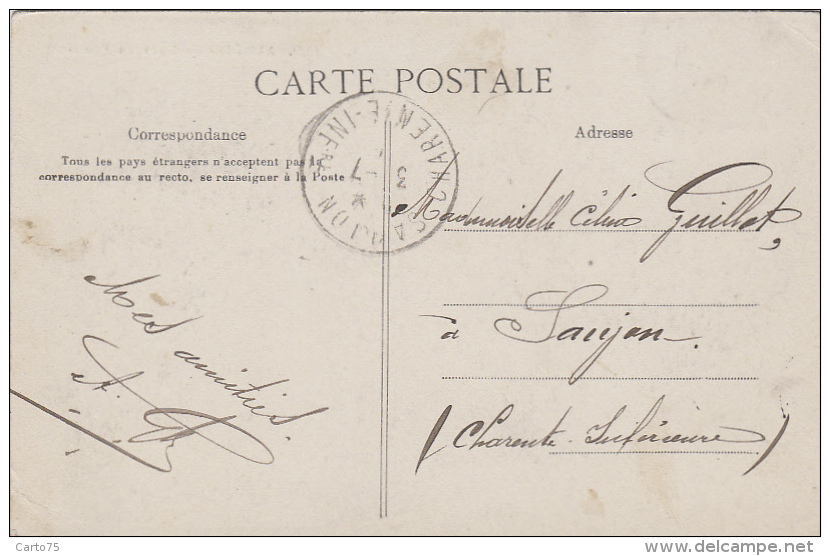 CARTE POSTALE
Correspondance
Tous les pays étrangers n'acceptent pas la
correspondance au recto, se renseigner à la Poste
Adresse
SAUJON
CHARENTE-INFRE
3 - 7
Mademoiselle Célina Guillot,
à Saujon.
(Charente-Inférieure)
Mes amitiés.
Carto75
www.delcampe.net